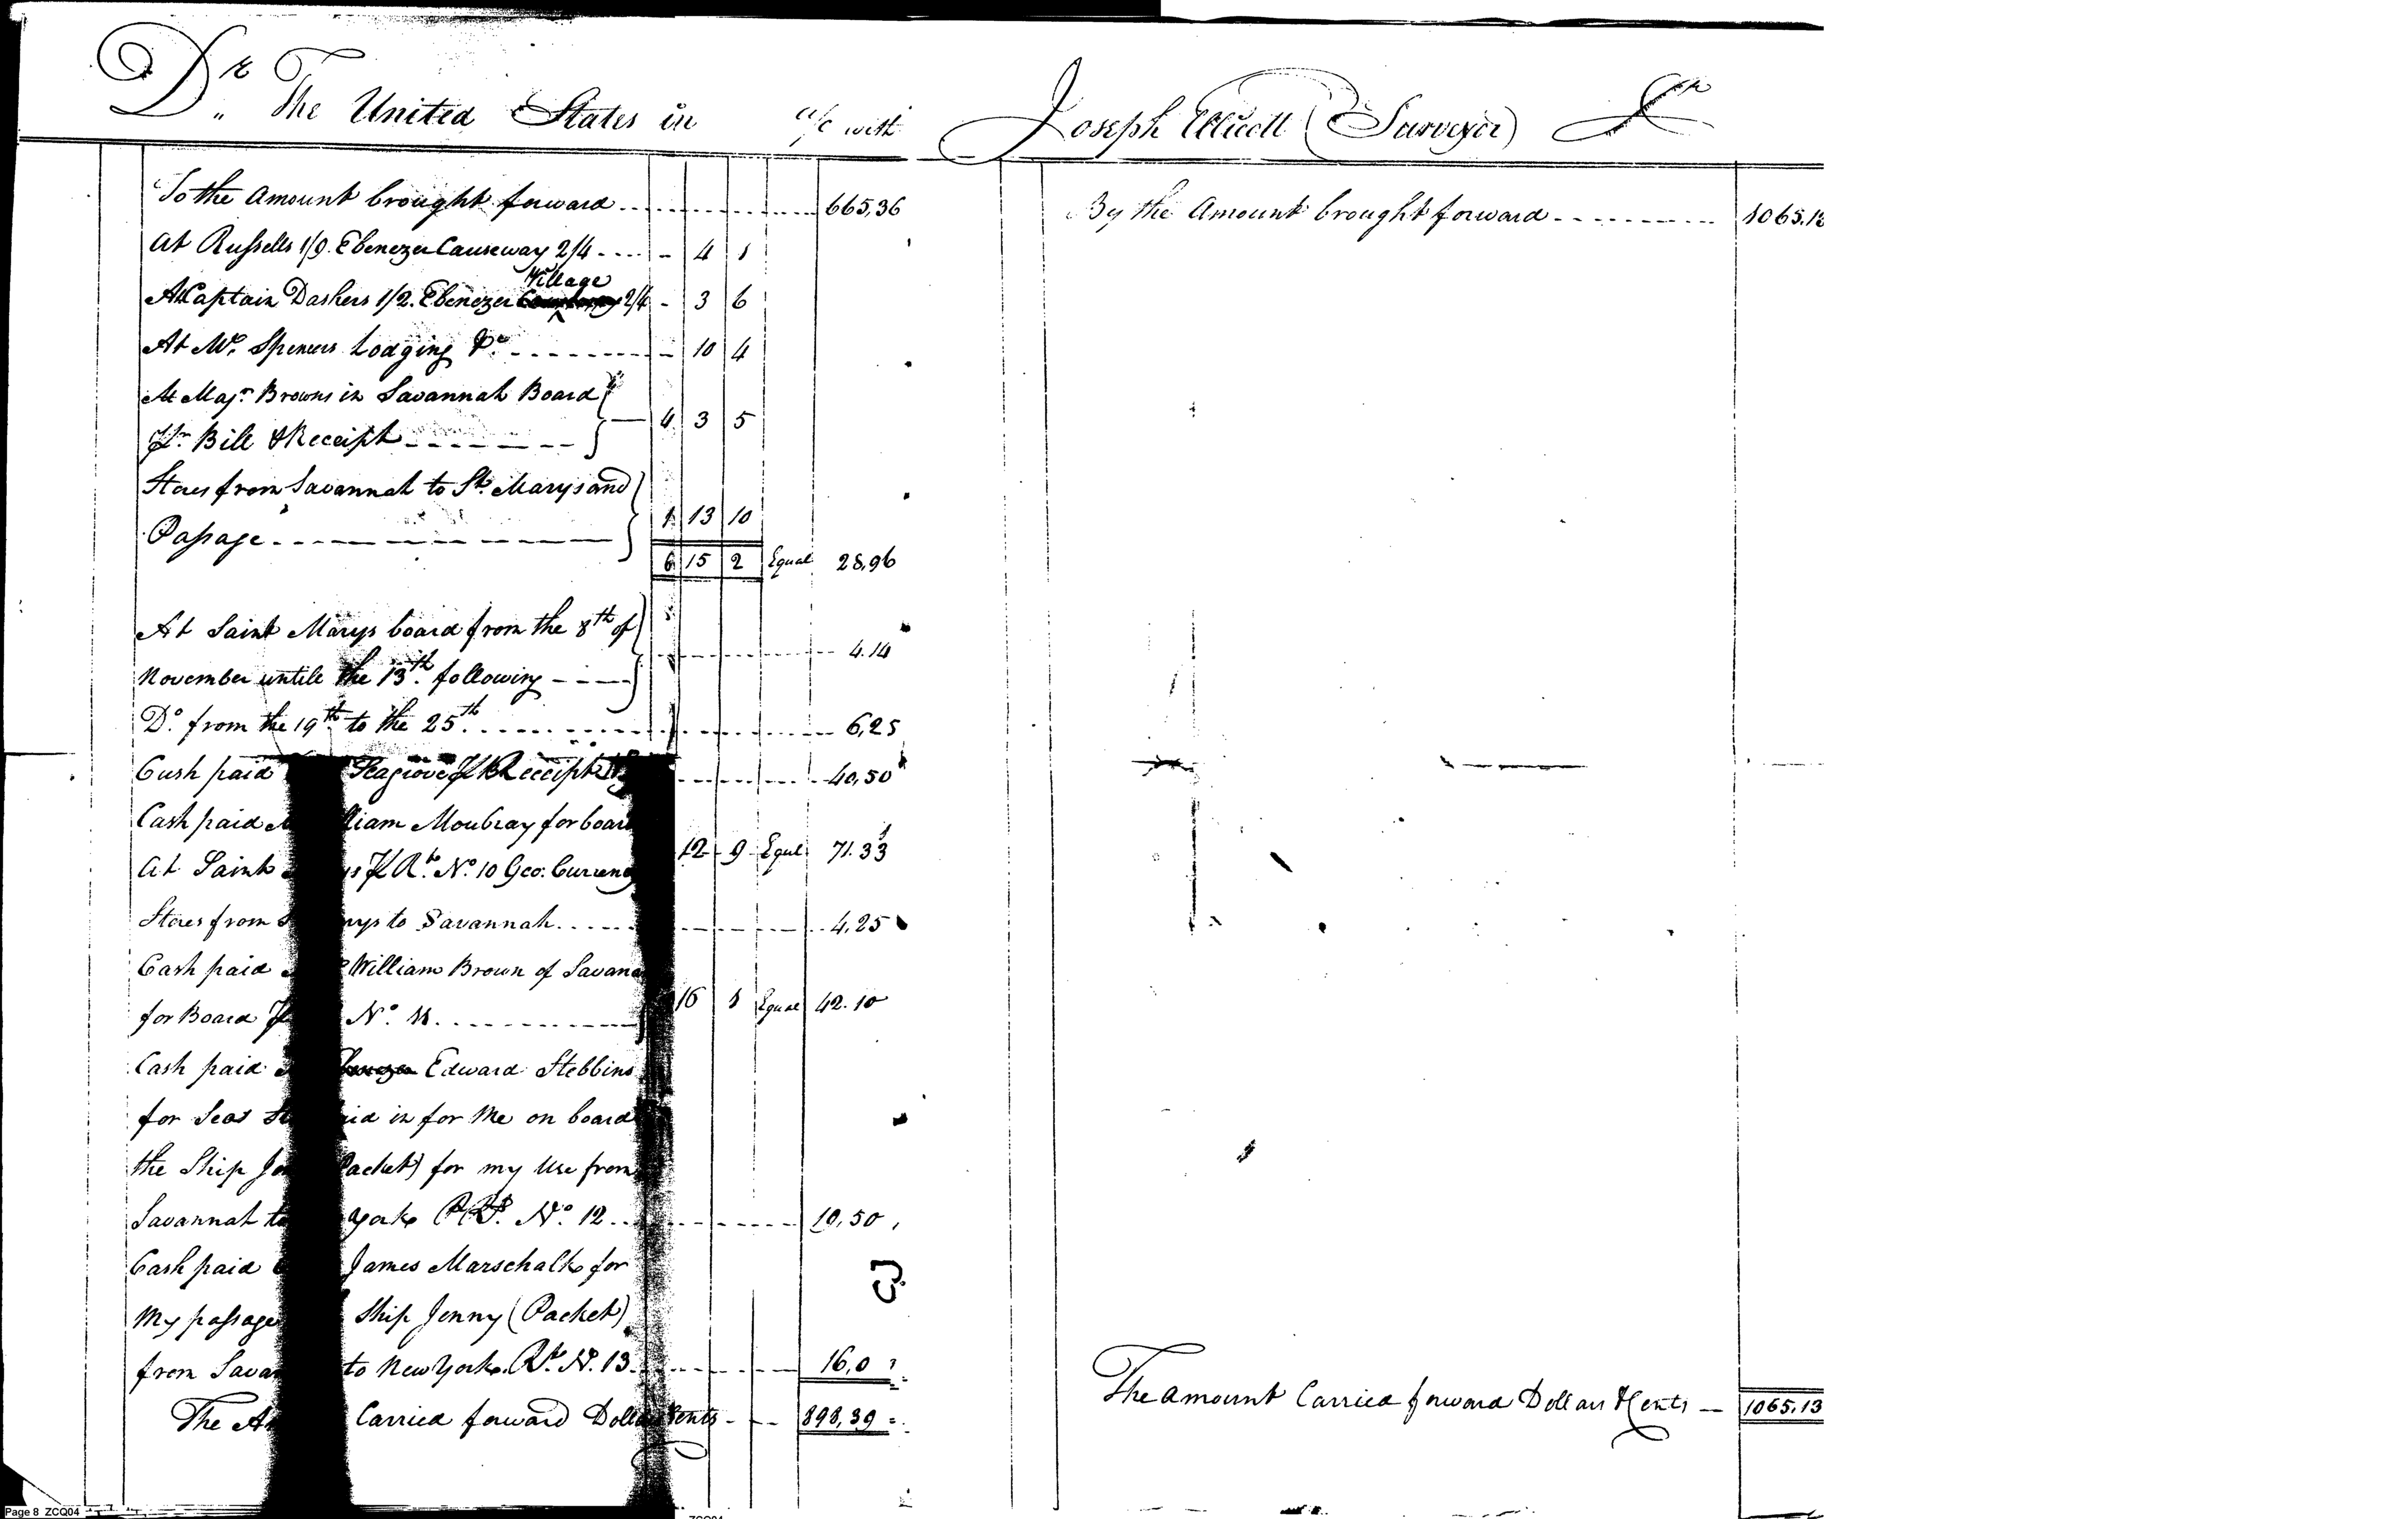 Dr. The United States in a/c with Joseph Ellicott (Surveyor) Cr
To the Amount brought forward 665,36
At Russells 1/9. Ebenezer Causeway 2/4 - 4 1
Village
At Captain Dashers 1/2. Ebenezer 2/4 - 3 6
At Mr. Spencers Lodging &c - 10 4
At Majr. Browns in Savannah Board
pr. Bill & Receipt 4 3 5
Stores from Savannah to St. Marys and
Passage 1 13 10
6 15 2 Equal 28,96
At Saint Marys board from the 8th of
November untile the 13th. following 4.14
Do. from the 19th. to the 25th. 6,25
Cash paid Seagrove Receipt 40,50
Cash paid liam Moubray for boar
12 9 Equl 71.33
At Saint Rt. No. 10 Geo. Curren
Stores from rys to Savannah 4,25
Cash paid William Brown of Savan
16 1 Equal 42.10
for Board No. 11
Cash paid Edward Stebbins
for Seas aid in for Me on board
the Ship Packet) for my Use from
Savannah to york Rt. No. 12 10,50
Cash paid James Marschalk for
My passage Ship Jenny (Packet)
from Sava to New York. Rt. N. 13 16,0
The A Carried forward Dolla Cents 898,39
By the Amount brought forward 1065.13
The Amount Carried forward Dollars & Cents 1065.13
Page 8 ZCQ04